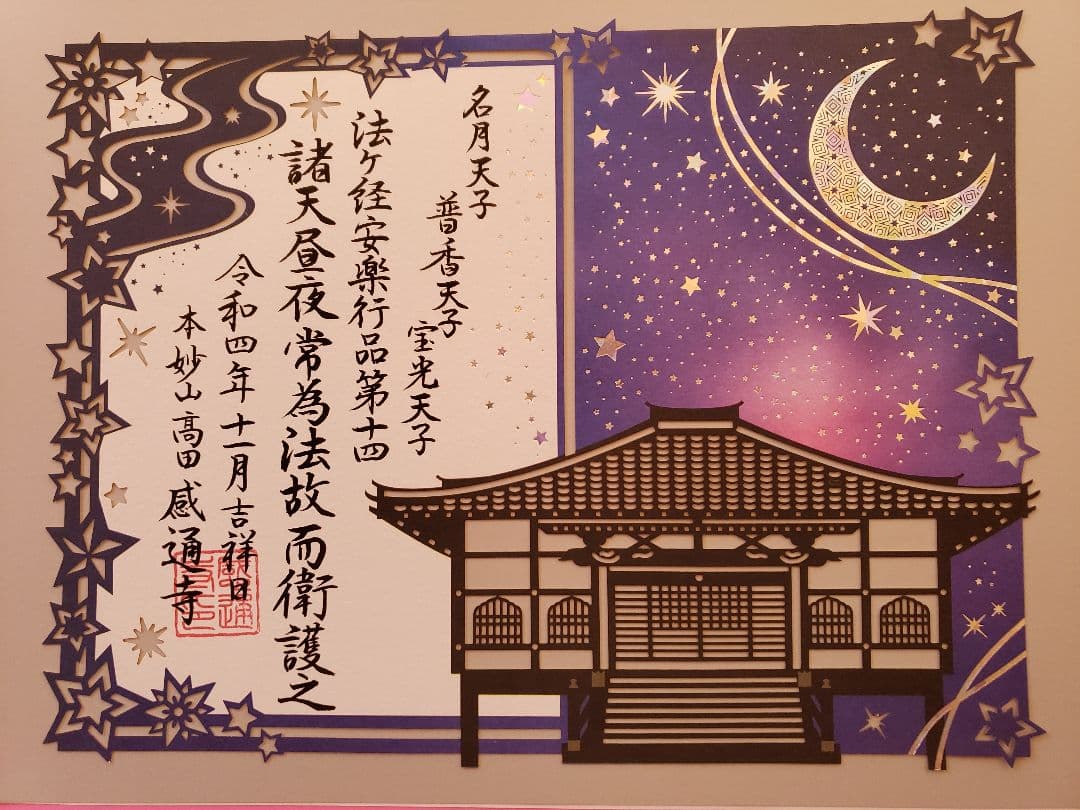 名月天子
普香天子
宝光天子
法ケ経安楽行品第十四
諸天昼夜常為法故而衛護之
令和四年十一月吉祥日
本妙山高田感通寺